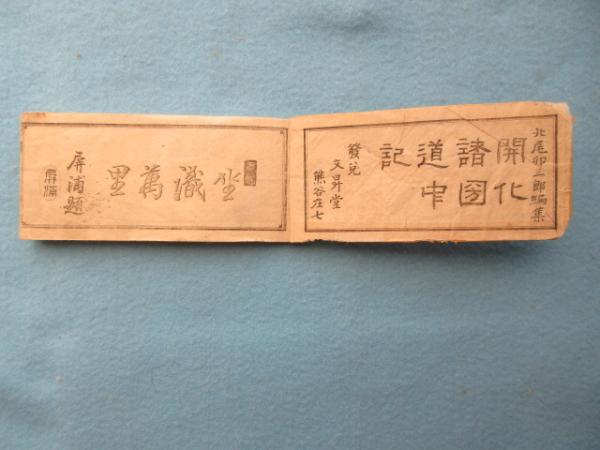 北尾卯三郎編集
開化
諸國
道中
記
發兌
文昇堂
熊谷庄七
坐識萬里
屏浦題